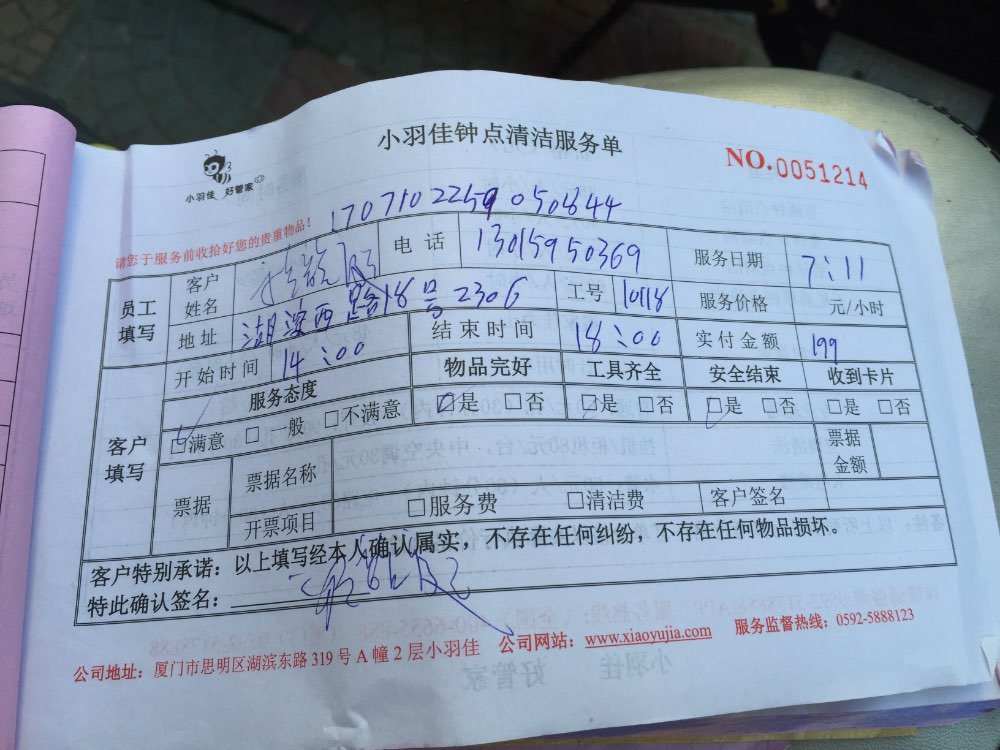 小羽佳钟点清洁服务单
NO.0051214
小羽佳 好管家
请您于服务前收拾好您的贵重物品!
员工填写 客户姓名 电话 13015950369 服务日期 7:11
地址 湖滨西路18号2306 工号 10118 服务价格 元/小时
客户填写 开始时间 14:00 结束时间 18:00 实付金额 199
服务态度 物品完好 工具齐全 安全结束 收到卡片
□满意 □一般 □不满意 □是 □否 □是 □否 □是 □否 □是 □否
票据 票据名称 票据金额
开票项目 □服务费 □清洁费 客户签名
客户特别承诺:以上填写经本人确认属实,不存在任何纠纷,不存在任何物品损坏。
特此确认签名:
公司地址:厦门市思明区湖滨东路319号A幢2层小羽佳 公司网站:www.xiaoyujia.com 服务监督热线:0592-5888123